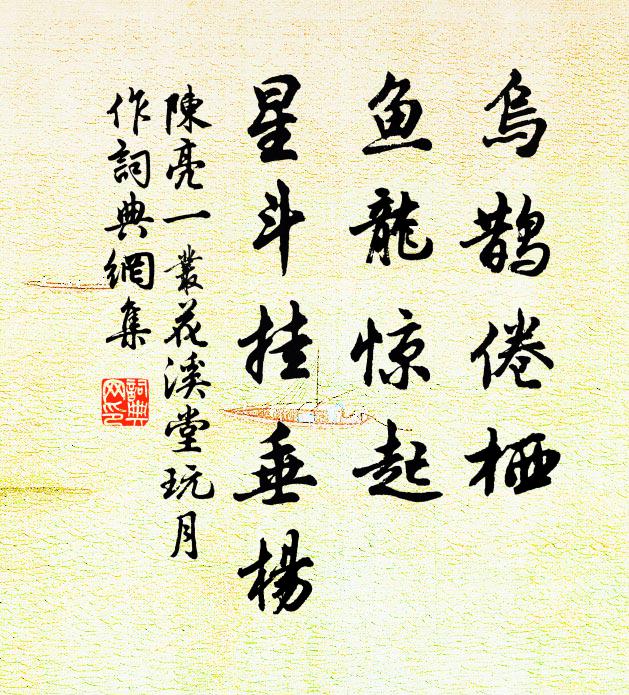 烏鹊倦栖
鱼龍惊起
星斗挂垂楊
陳亮一叢花溪堂玩月
作詞典網集
詞典网印